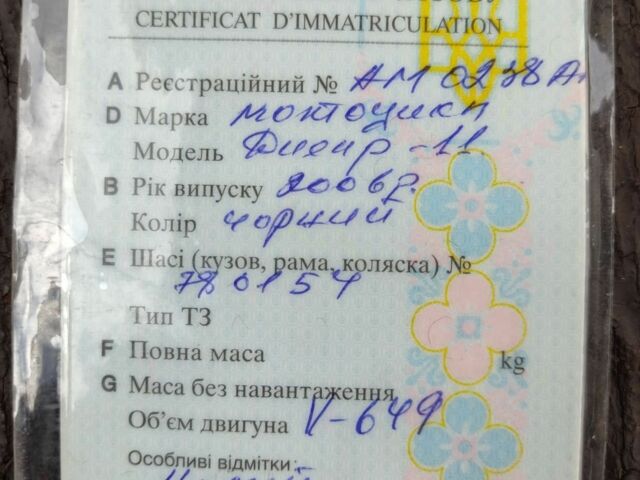 CERTIFICAT D'IMMATRICULATION
A Реєстраційний № АМ 0238А
D Марка мотоцикл
Модель Днепр-11
B Рік випуску 2006р.
Колір чорний
E Шасі (кузов, рама, коляска) №
780154
Тип ТЗ
F Повна маса kg
G Маса без навантаження
Об'єм двигуна V-649
Особливі відмітки: